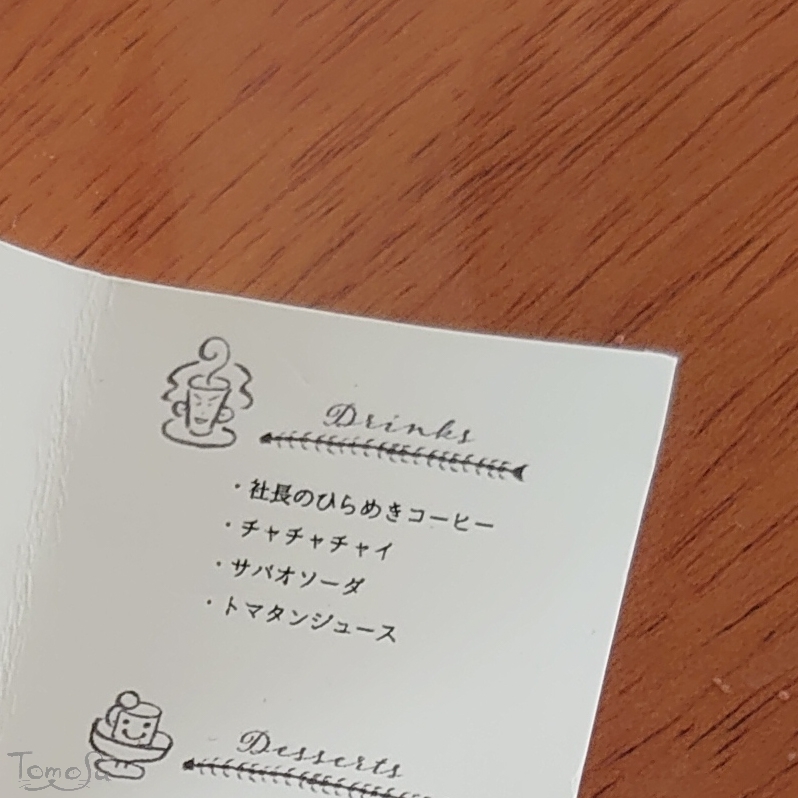 Drinks
・社長のひらめきコーヒー
・チャチャチャイ
・サバオソーダ
・トマタンジュース
Desserts
Tomosa